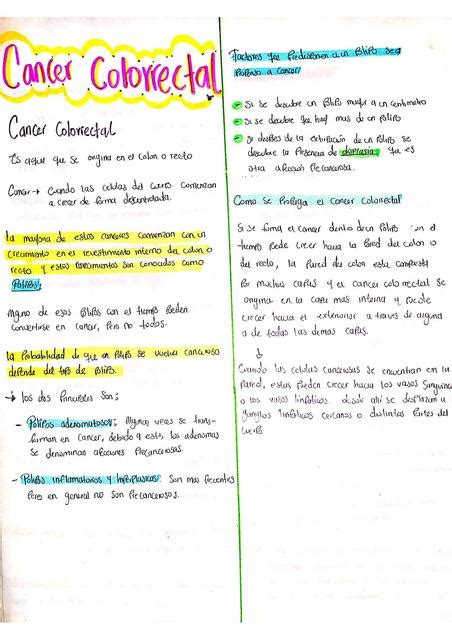 Cancer Colorrectal
Cancer Colorrectal
Es aquel que se origina en el colon o recto
Cancer → Cuando las celulas del cuerpo comienzan
a crecer de forma descontrolada.
la mayoria de estos canceres comienzan con un
crecimiento en el revestimiento interno del colon o
recto y estos crecimientos son conocidos como
Polipos;
Alguno de esos Polipos con el tiempo Pueden
convertirse en cancer, Pero no todos.
la Probabilidad de que un Polipo se vuelva canceroso
depende del tipo de Polipo.
→ los dos Principales son;
- Polipos adenomatosos: Algunas veces se trans-
forman en cancer, debido a esto, los adenomas
se denominan afecciones Precancerosas.
- Polipos inflamatorios y hiperplasicos: Son mas frecuentes
Pero en general no son Precancerosos.
Factores que Predisponen a un Polipo sea
Propenso a cancer/
- Si se descubre un Polipo mayor a un centimetro
- Si se descubre que hay mas de un Polipo
- Si despues de la extirpación de un Polipo se
descubre la Presencia de displasia, que es
otra afeccion Precancerosa.
Como se Propaga el cancer colorectal
Si se forma el cancer dentro de un Polipo con el
tiempo Puede crecer hacia la Pared del colon o
del recto, la Pared del colon esta compuesta
Por muchas capas y el cancer colorectal se
origina en la capa mas interna y Puede
crecer hacia el exterior a traves de alguna
o de todas las demas capas.
↓
Cuando las celulas cancerosas se encuentran en la
Pared, estas Pueden crecer hacia los vasos Sanguineos
o los vasos linfaticos, desde ahi se desplazan a
ganglios linfaticos cercanos o distintas Partes del
cuerpo